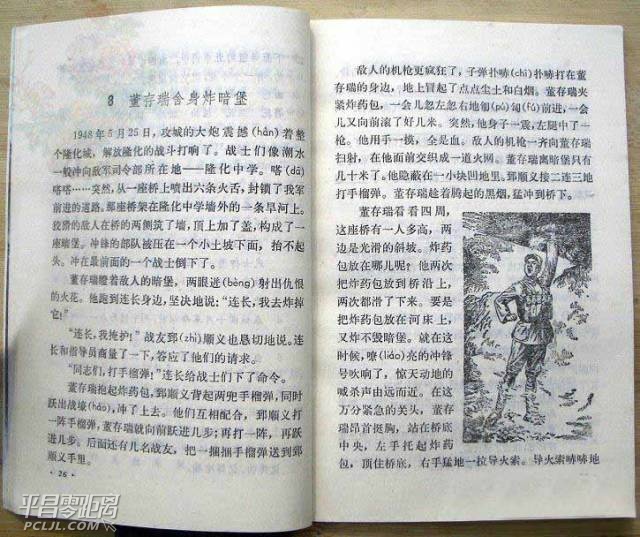 8 董存瑞舍身炸暗堡
1948年5月25日，攻城的大炮震撼(hàn)着整
个隆化城，解放隆化的战斗打响了。战士们像潮水
一般冲向敌军司令部所在地——隆化中学。嗒(dā)
嗒嗒……突然，从一座桥上喷出六条火舌，封锁了我军
前进的道路。那座桥架在隆化中学墙外的一条旱河上。
狡猾的敌人在桥的两侧筑了墙，顶上加了盖，构成了一
座暗堡。冲锋的部队被压在一个小土坡下面，抬不起
头。冲在最前面的一个战士倒下了。
董存瑞瞪着敌人的暗堡，两眼迸(bèng)射出仇恨
的火花。他跑到连长身边，坚决地说：“连长，我去炸掉
它！”
“连长，我掩护！”战友郅(zhì)顺义也恳切地说。连
长和指导员商量了一下，答应了他们的请求。
“同志们，打手榴弹！”连长给战士们下了命令。
董存瑞抱起炸药包，郅顺义背起两兜手榴弹，同时
跃出战壕(háo)，冲了上去。他们互相配合，郅顺义打
一阵手榴弹，董存瑞就向前跃进几步；再打一阵，再跃
进几步。后面还有几名战友，把一捆捆手榴弹送到郅
顺义手里。
·26·
敌人的机枪更疯狂了，子弹扑哧(chī)扑哧打在董
存瑞的身边，地上冒起了点点尘土和白烟。董存瑞夹
紧炸药包，一会儿忽左忽右地匍(pú)匐(fú)前进，一会
儿又向前滚了好几米。突然，他身子一震，左腿中了一
枪。他用手一摸，全是血。敌人的机枪一齐向董存瑞
扫射，在他面前交织成一道火网。董存瑞离暗堡只有
几十米了。他隐蔽在一小块凹地里。郅顺义接二连三地
打手榴弹。董存瑞趁着腾起的黑烟，猛冲到桥下。
董存瑞看看四周，
这座桥有一人多高，两
边是光滑的斜坡。炸药
包放在哪儿呢？他两次
把炸药包放到桥沿上，
两次都滑了下来。要是
把炸药包放在河床上，
又炸不毁暗堡。就在这
时候，嘹(liáo)亮的冲锋
号吹响了，惊天动地的
喊杀声由远而近。在这
万分紧急的关头，董存
瑞昂首挺胸，站在桥底
中央，左手托起炸药
包，顶住桥底，右手猛地一拉导火索。导火索哧哧地
平昌零距离
PCLJL.COM